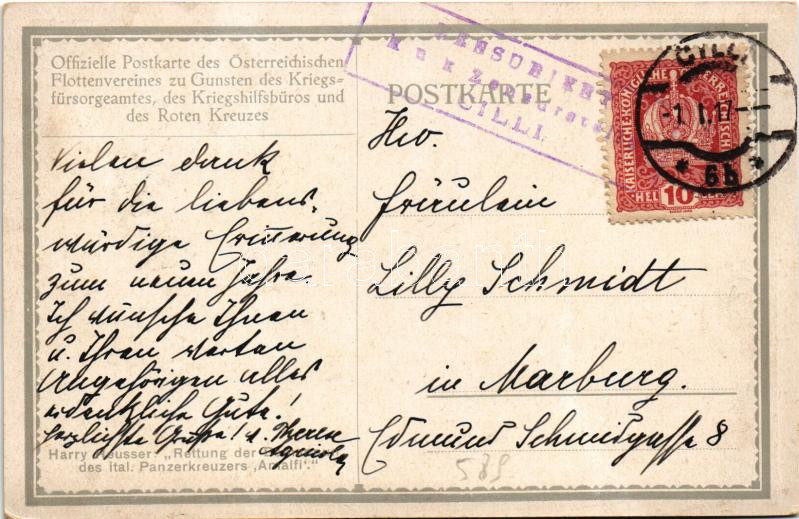 Offizielle Postkarte des Österreichischen
Flottenvereines zu Gunsten des Kriegs-
fürsorgeamtes, des Kriegshilfsbüros und
des Roten Kreuzes
POSTKARTE
ZENSURIERT
K.u.K Zensurstelle
CILLI
CILLI
-1. I. 17
* 6b *
KAISERLICHE KÖNIGLICHE ÖSTERREICHISCHE
HELLER 10 HELLER
Vielen dank
für die liebens-
würdige Erinnerung
zum neuen Jahre.
Ich wünsche Ihnen
u. Ihren werten
Angehörigen alles
erdenkliche Gute!
herzlichste Grüße! v.
Harry Heusser: „Rettung der
des ital. Panzerkreuzers ‚Amalfi‘."
Fräulein
Lilly Schmidt
in Marburg.
Edmund Schmidgasse 8
589